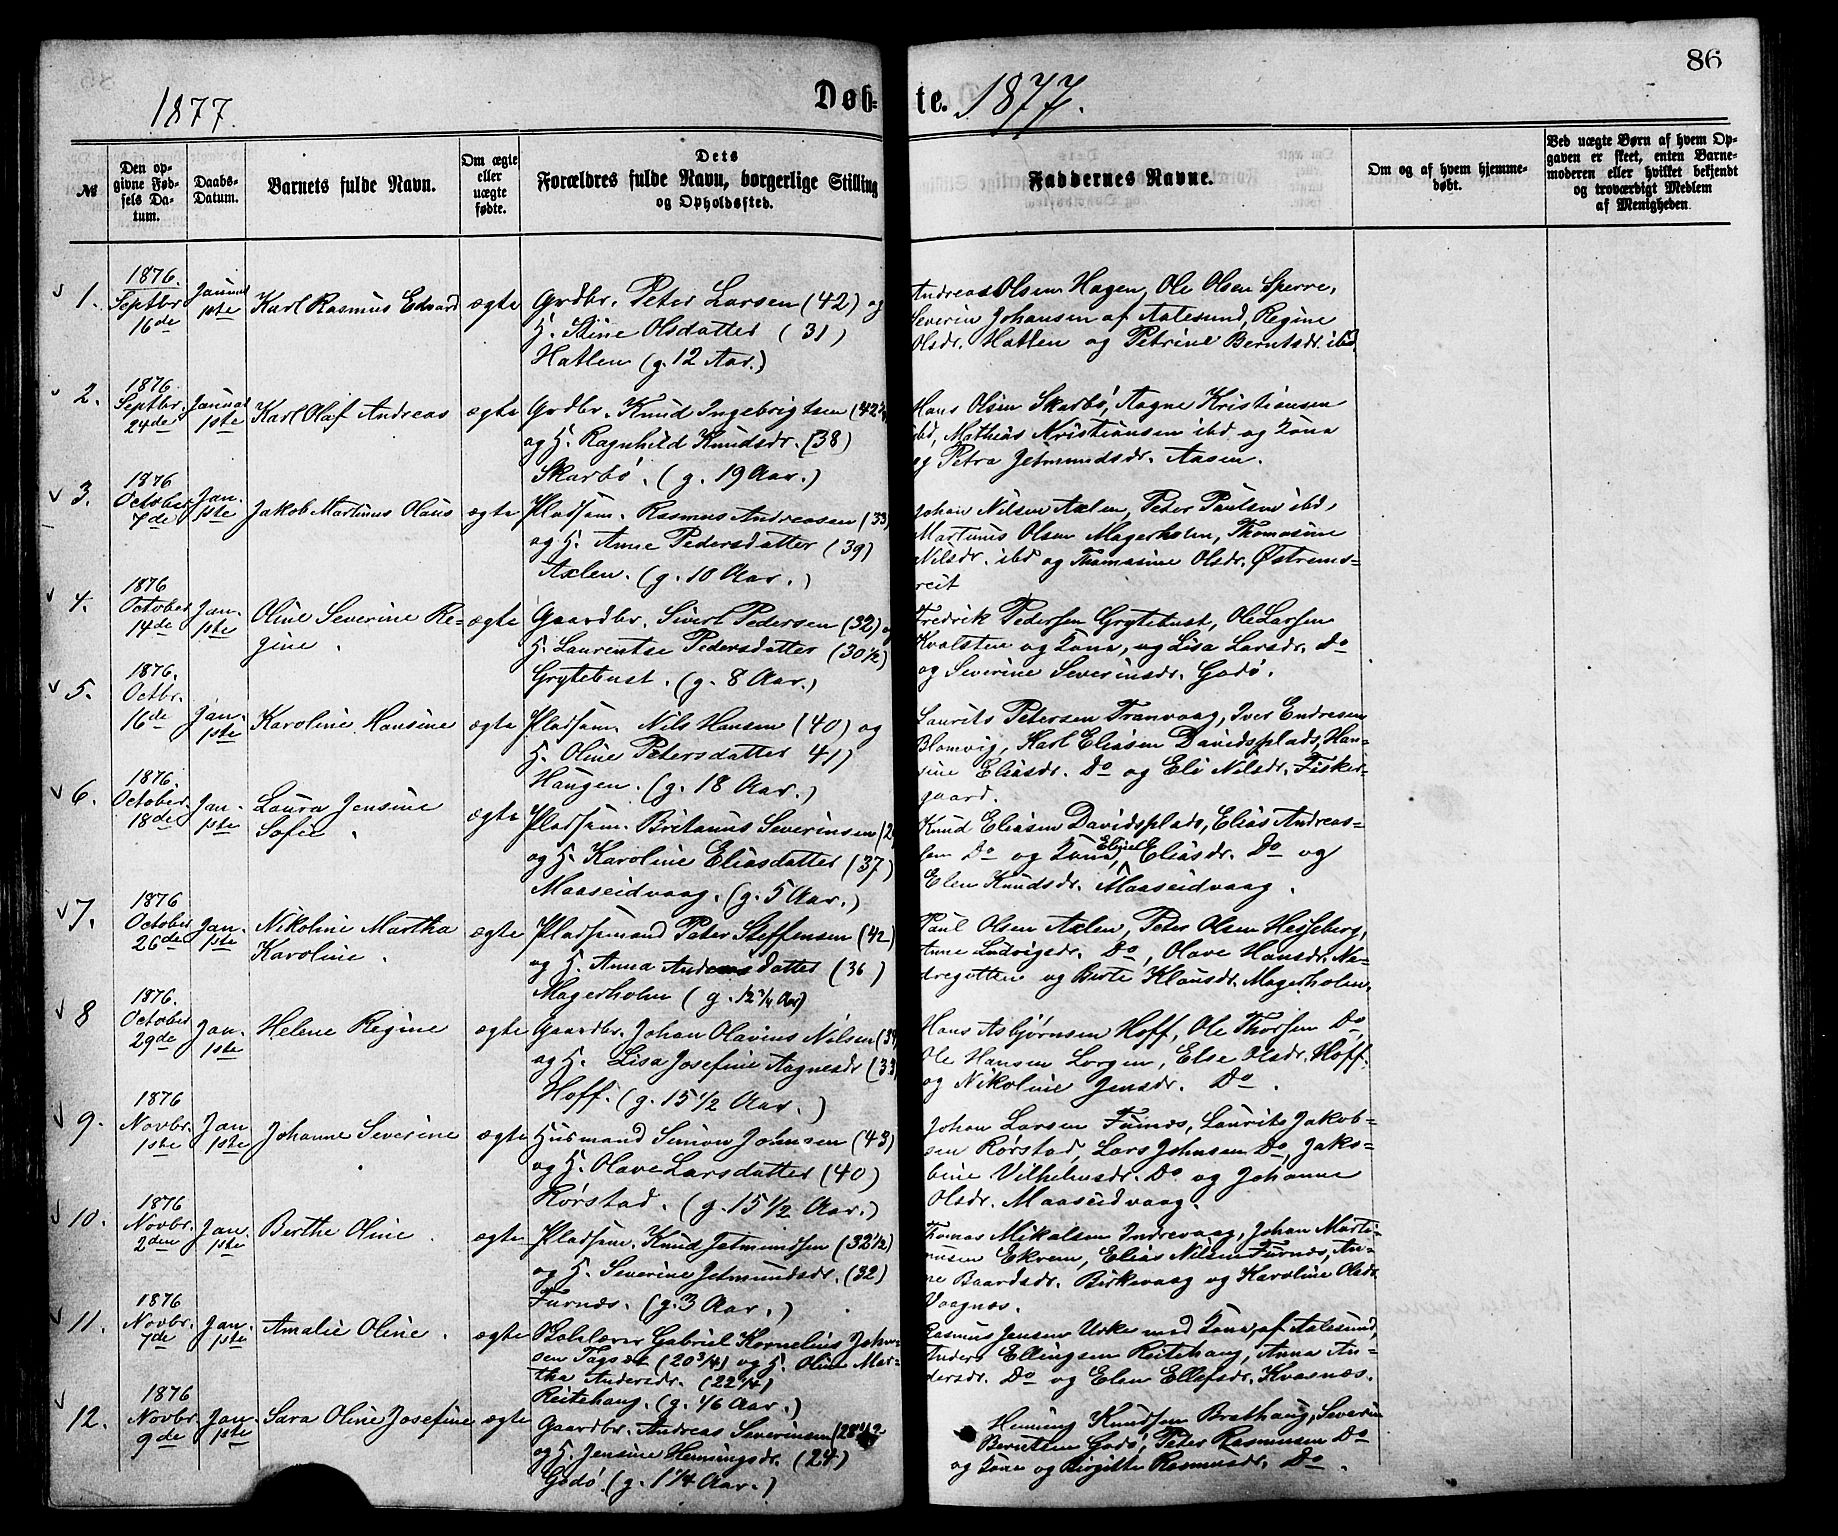 86
1877.
Døb-
te. 1877.
№
Den op-
givne Fød-
sels Da-
tum.
Daabs-
Datum.
Barnets fulde Navn.
Om ægte
eller
uægte
fødte.
Dets
Forældres fulde Navn, borgerlige Stilling
og Opholdssted.
Faddernes Navne.
Om og af hvem hjemme-
døbt.
Ved uægte Børn af hvem Op-
gaven er skeet, enten Barne-
moderen eller hvilket bekjendt
og troværdigt Medlem
af Menigheden.
1.
1876.
Septbr.
16de
Januar
1ste
Karl Rasmus Edvard
ægte
Grdbr. Peter Larsen (42) og
H. Stine Olsdatter (31)
Hatlen (g. 12 Aar.)
Andreas Olsen Hagen, Ole Olsen Sperre,
Severin Johansen af Aalesund, Regine
Olsdr. Hatlen og Petrine Berntsdr. ibd.
2.
1876.
Septbr.
24de
Januar
1ste
Karl Olaf Andreas
ægte
Grdbr. Knud Ingebrigtsen (42
og H. Ragnhild Knudsdr. (38)
Skarbø. (g. 19 Aar.)
Hans Olsen Skarbø, Aagne Kristiansen
ibd, Mathias Kristiansen ibd og Kona
og Petra Jetmundsdr. Aasen.
3.
1876
October
7de
Jan.
1ste
Jakob Martinus Olaus
ægte
Pladsem. Rasmus Andreasen (33)
og H. Anne Pedersdatter (39)
Axlen. (g. 10 Aar.)
Johan Nilsen Axlen, Peter Paulsen ibd,
Martinus Olsen Magerholm, Thomasine
Nilsdr. ibd og Thomasine Olsdr. Østrems-
reit
4.
1876
October
14de
Jan.
1ste
Oline Severine Re-
gine.
ægte
Gaardbr. Sivert Pedersen (32) og
H. Laurentse Pedersdatter (30 1/2)
Grytebust. (g. 8 Aar.)
Fredrik Pedersen Grytebust, Ole Larsen
Kvalsten og Kona, og Lisa Larsdr. Do
og Severine Severinsdr. Godø.
5.
1876.
Octbr.
16de
Jan.
1ste
Karoline Hansine
ægte
Pladsem. Nils Hansen (40) og
H. Oline Petersdatter 41)
Haugen. (g. 18 Aar.)
Laurits Petersen Tranvaag, Iver Endresen
Blomvig, Karl Eliasen Davidsplads, Han-
sine Eliasdr. Do og Eli Nilsdr. Fisker-
gaard.
6.
1876
October.
18de
Jan.
1ste
Laura Jensine
Sofie.
ægte
Pladsem. Britanus Severinsen (2
og H. Karoline Eliasdatter (37)
Maaseidvaag. (g. 5 Aar.)
Knud Eliasen Davidsplads, Elias Andreas-
sen Do og Kona, Eliasdr. Do og
Elen Knudsdr. Maaseidvaag.
7.
1876
October
26de
Jan.
1ste
Nikoline Martha
Karoline.
ægte
Pladsemand Peter Steffensen (42
og H. Anna Andreasdatter (36)
Magerholm (g. 12 1/4 Aar)
Paul Olsen Axlen, Peter Olsen Hesseberg,
Anne Ludvigsdr. Do, Olave Hansdr. Ne-
dregotten og Berte Klausdr. Magerholm.
8
1876.
October
29de
Jan.
1ste
Helene Regine
ægte
Gaardbr. Johan Olavius Nilsen (39
og H. Lisa Josefine Aagnesdr (33
Hoff. (g. 15 1/2 Aar.)
Hans Asbjørnsen Hoff, Ole Thorsen Do,
Ole Hansen Lorgen, Else Olsdr. Hoff.
og Nikoline Jensdr. Do.
9.
1876
Novbr.
1ste
Jan
1ste
Johanne Severine
ægte
Husmand Simon Johnsen (43)
og H. Olave Larsdatter (40)
Rørstad. (g. 15 1/2 Aar.)
Johan Larsen Furnæs, Laurits Jakob-
sen Rørstad, Lars Johnsen Do, Jako-
bine Vilhelmsdr. Do og Johanne
Olsdr. Maaseidvaag.
10.
1876
Novbr.
2den
Jan.
1ste
Berthe Oline.
ægte
Pladsem. Knud Jetmundsen (32 1/2)
og H. Severine Jetmundsdr. (32)
Furnæs. (g. 3 Aar.)
Thomas Mikalsen Indrevaag, Johan Marti-
nusen Ekrem, Elias Nilsen Furnæs, An-
ne Baardsdr. Birkevaag og Karoline Olsdr.
Vaagnæs.
11.
1876
Novbr.
7de
Jan.
1ste
Amalie Oline.
ægte
Gabriel Kornelius John-
sen Tagseth (20 3/4) og H. Oline Mar-
tha Andersdr. (22 1/4)
Reitehaug. (g. 1/6 Aar.)
Rasmus Jensen Urke med Kona, af Aalesund,
Anders Ellingsen Reitehaug, Anna An-
dersdr. Do og Elen Ellefsdr. Kvasnes.
12.
1876
Novbr.
9de
Jan.
1ste
Sara Oline Josefine
ægte
Gaardbr. Andreas Severinsen (28 1/2
og H. Jensine Hemingsdr. (24)
Godø (g. 1 1/4 Aar.)
Heming Knudsen Brathaug, Severin
Berntsen Godø, Peter Rasmusen Do
og Kona og Birgitte Rasmusdr. Do.